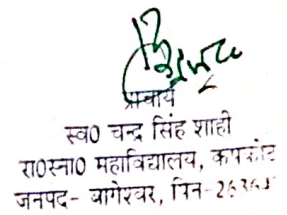 प्राचार्य
स्व0 चन्द्र सिंह शाही
रा0स्ना0 महाविद्यालय, कपकोट
जनपद- बागेश्वर, पिन-